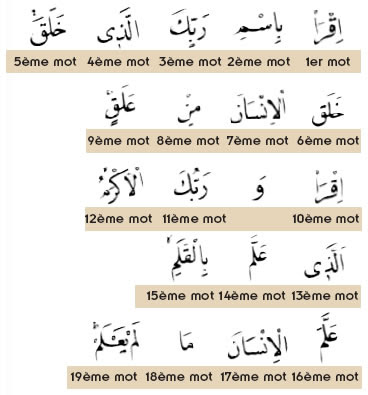 اِقْرَأْ بِاسْمِ رَبِّكَ الَّذِى خَلَقَۚ
1er mot 2ème mot 3ème mot 4ème mot 5ème mot
خَلَقَ الْاِنْسَانَ مِنْ عَلَقٍۚ
6ème mot 7ème mot 8ème mot 9ème mot
اِقْرَأْ وَ رَبُّكَ الْاَكْرَمُۙ
10ème mot 11ème mot 12ème mot
اَلَّذِى عَلَّمَ بِالْقَلَمِۙ
13ème mot 14ème mot 15ème mot
عَلَّمَ الْاِنْسَانَ مَا لَمْ يَعْلَمْۜ
16ème mot 17ème mot 18ème mot 19ème mot